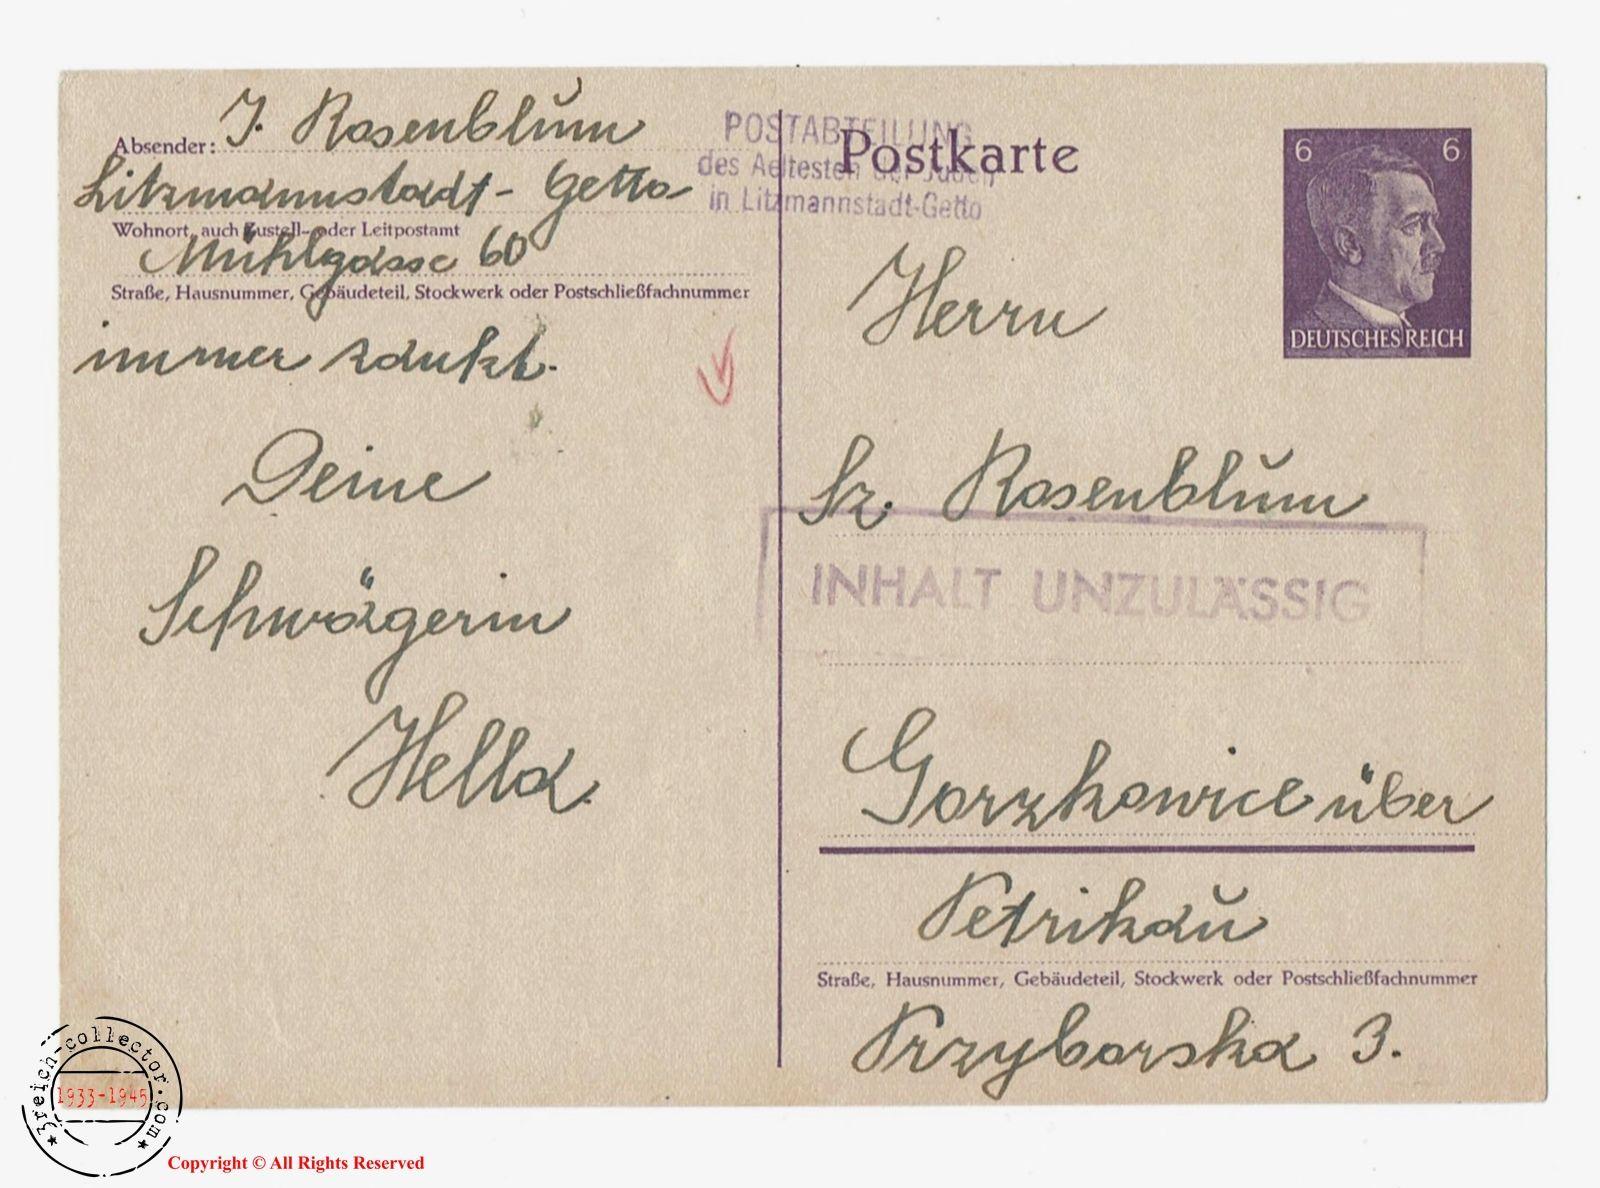 Absender: J. Rosenblum
Litzmannstadt-Getto
Wohnort, auch Zustell- oder Leitpostamt
Mühlgasse 60
Straße, Hausnummer, Gebäudeteil, Stockwerk oder Postschließfachnummer
immer
Deine
Schwägerin
Hella
POSTABTEILUNG
des Aeltesten der Juden
in Litzmannstadt-Getto
Postkarte
6 6
DEUTSCHES REICH
Herrn
Sz. Rosenblum
INHALT UNZULÄSSIG
Gorzkowice über
Petrikau
Straße, Hausnummer, Gebäudeteil, Stockwerk oder Postschließfachnummer
Przyborska 3.
3reich-collector.com
1933-1945
Copyright © All Rights Reserved